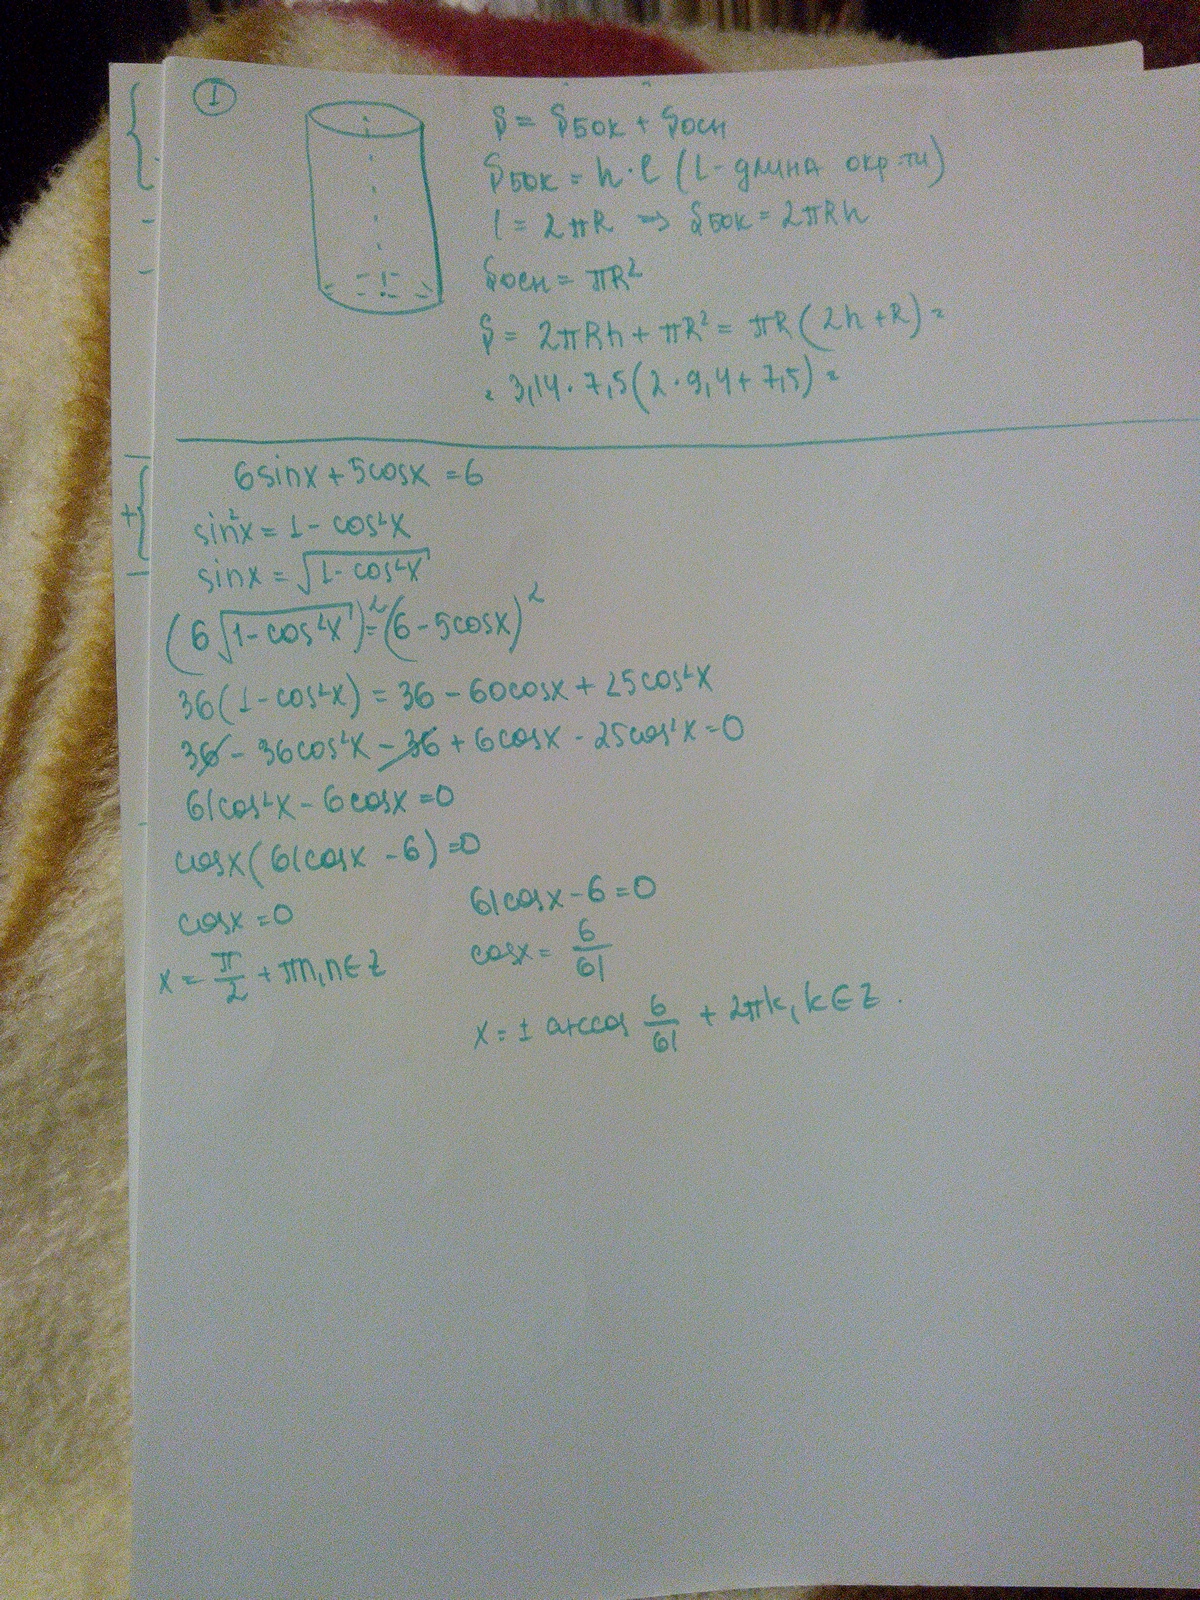 1
S = Sбок + Sосн
Sбок = h · l (L - длина окр-ти)
l = 2πR => Sбок = 2πRh
Sосн = πR²
S = 2πRh + πR² = πR(2h + R) =
= 3,14 · 7,5(2 · 9,4 + 7,5) =
6sinx + 5cosx = 6
sin²x = 1 - cos²x
sinx = √(1 - cos²x)
(6√(1 - cos²x))² = (6 - 5cosx)²
36(1 - cos²x) = 36 - 60cosx + 25cos²x
36 - 36cos²x - 36 + 6cosx - 25cos²x = 0
61cos²x - 6cosx = 0
cosx(61cosx - 6) = 0
cosx = 0
x = π/2 + πn, n ∈ Z
61cosx - 6 = 0
cosx = 6/61
x = ± arccos 6/61 + 2πk, k ∈ Z.